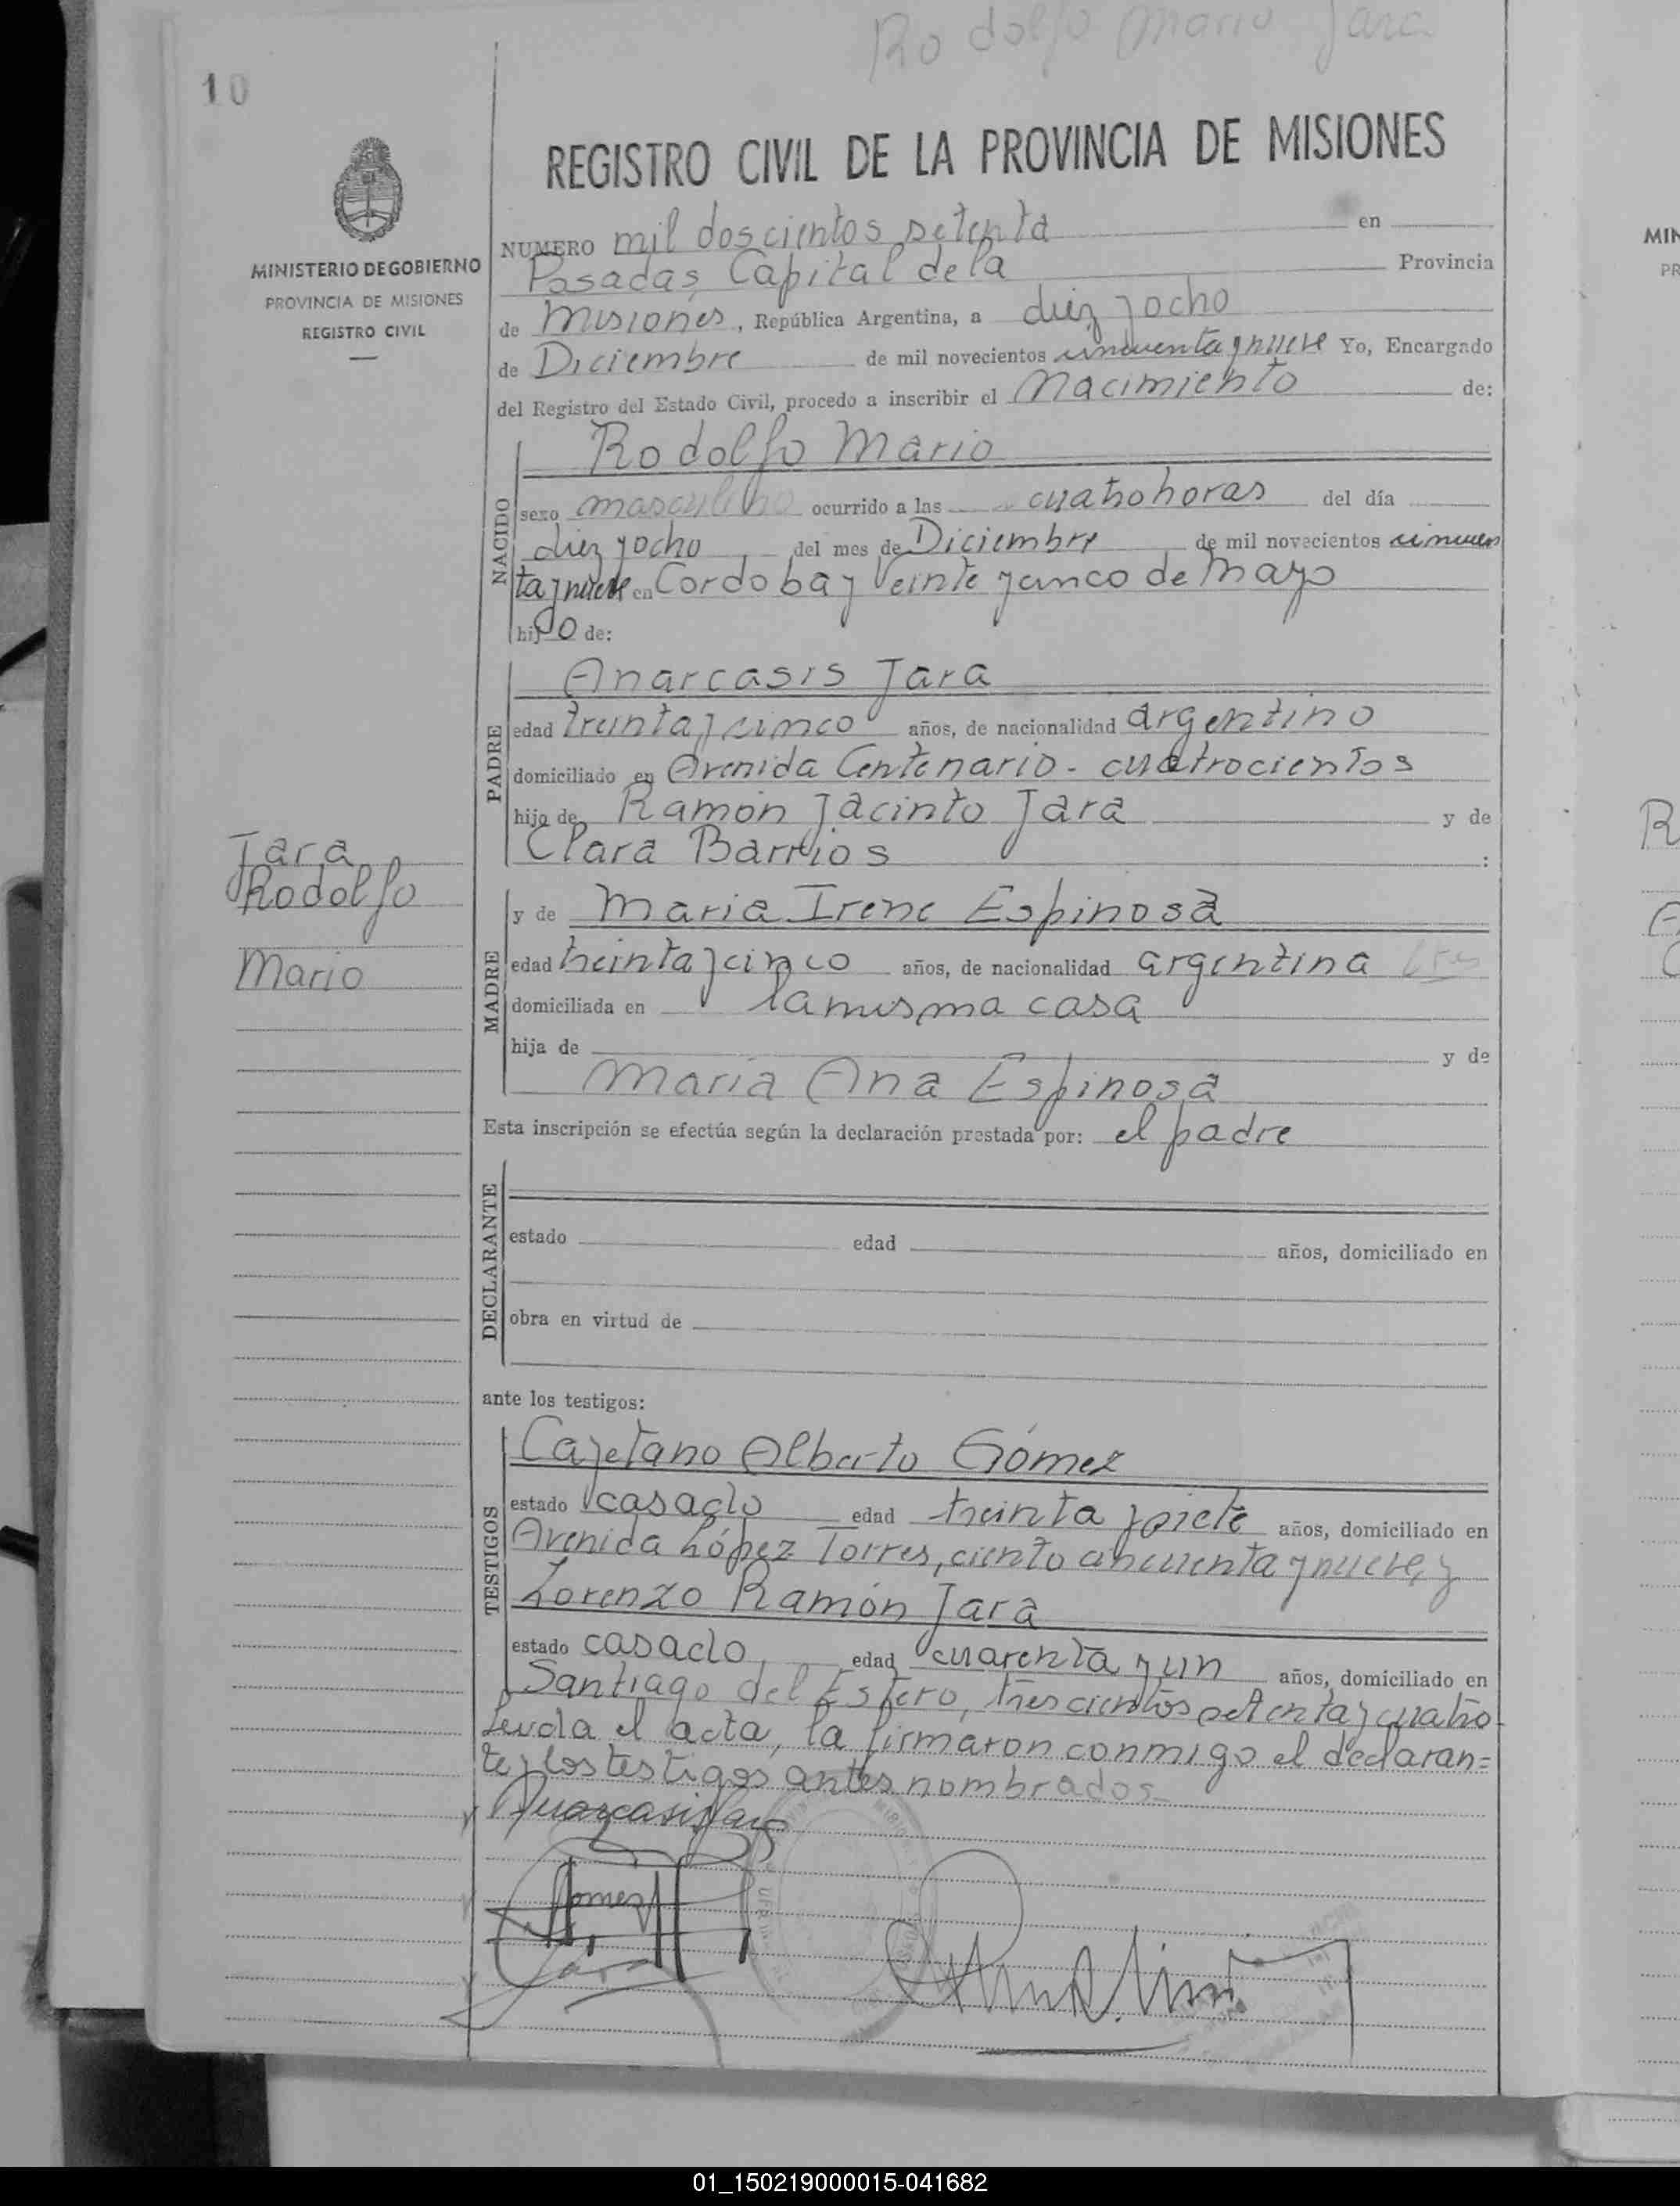 Rodolfo Mario Jara
10
REGISTRO CIVIL DE LA PROVINCIA DE MISIONES
MINISTERIO DE GOBIERNO
PROVINCIA DE MISIONES
REGISTRO CIVIL
NUMERO mil doscientos setenta en
Posadas, Capital de la Provincia
de Misiones, República Argentina, a diez y ocho
de Diciembre de mil novecientos cincuenta y nueve Yo, Encargado
del Registro del Estado Civil, procedo a inscribir el Nacimiento de:
NACIDO
Rodolfo Mario
sexo masculino ocurrido a las cuatro horas del día
diez y ocho del mes de Diciembre de mil novecientos cincuen
ta y nueve en Cordoba y Veinte y cinco de Mayo
hijo de:
PADRE
Anarcasis Jara
edad treinta y cinco años, de nacionalidad argentino
domiciliado en Avenida Centenario - cuatrocientos
hijo de Ramón Jacinto Jara y de
Clara Barrios :
Jara
Rodolfo
Mario
MADRE
y de Maria Irene Espinosa
edad treinta y cinco años, de nacionalidad argentina
domiciliada en la misma casa
hija de y de
María Ana Espinosa
Esta inscripción se efectúa según la declaración prestada por: el padre
DECLARANTE
estado edad años, domiciliado en
obra en virtud de
ante los testigos:
TESTIGOS
Cayetano Alberto Gómez
estado casado edad treinta y siete años, domiciliado en
Avenida López Torres, ciento cincuenta y nueve, y
Lorenzo Ramón Jara
estado casado, edad cuarenta y un años, domiciliado en
Santiago del Estero, trescientos setenta y cuatro
Leída el acta, la firmaron conmigo el declaran=
te y los testigos antes nombrados
Anarcasis Jara
Gomez
Jara
MIN
PR
R
01_150219000015-041682